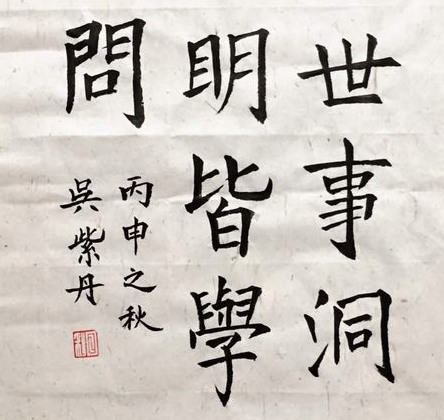 世事洞
明皆學
問
丙申之秋
吳紫丹